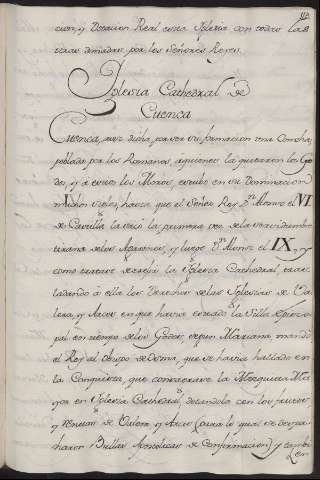 cion, y Dotacion Real esta Iglesia con todas las
tierras donadas, por los Señores Reyes.
Iglesia Cathedral de
Cuenca
Cuenca, assi dicha, por ser su formacion una Concha,
poblada por los Romanos, a quienes la quitaron los Go
dos, y a estos los Moros, estubo en su Dominacion
muchos siglos, hasta que el Señor Rey Dn. Alonso el VI
de Castilla la sacò la primera vez de la servidumbre
tirana de los Agarenos, y luego Dn. Alonso el IX, y
como tratase de erigir la Iglesia Cathedral, tras
ladando à ella los Derechos de las Iglesias de Va
lera, y Arcas en que havia estado la Silla Episco
pal en tiempo de los Godos, segun Mariana mandò
el Rey al Obispo de Osma, que se havia hallado en
la Conquista, que consagrase la Mezquita Ma
yor en Iglesia Cathedral, dotandola con los frutos
y Rentas de Valera, y Arcas (para lo qual se despa
charon Bullas Apostolicas de Confirmacion) y tambi
en